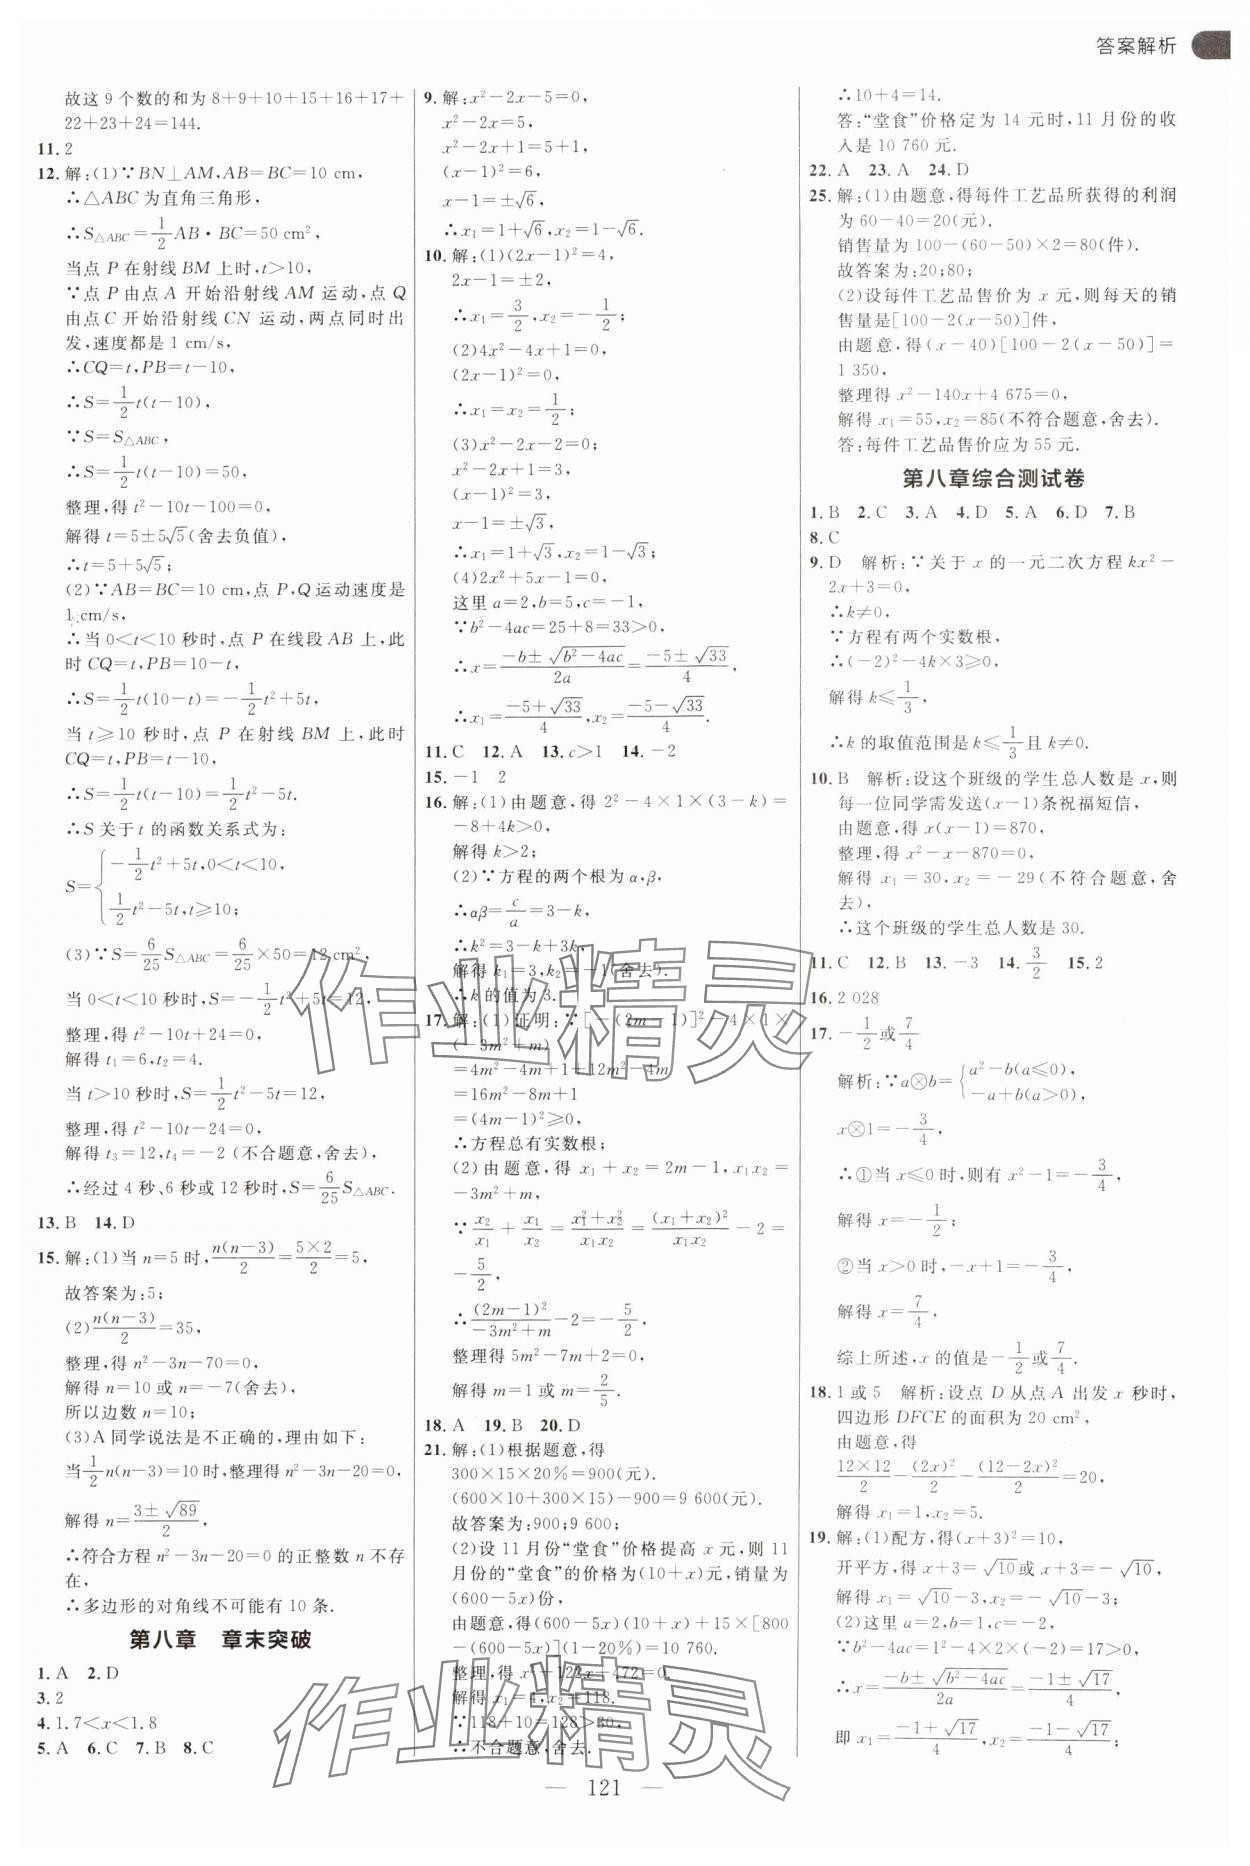 答案解析
故这 9 个数的和为 8+9+10+15+16+17+
22+23+24=144.
11. 2
12. 解:(1)∵BN⊥AM,AB=BC=10 cm,
∴△ABC 为直角三角形,
∴S△ABC=1/2 AB·BC=50 cm²,
当点 P 在射线 BM 上时,t>10,
∵点 P 由点 A 开始沿射线 AM 运动,点 Q
由点 C 开始沿射线 CN 运动,两点同时出
发,速度都是 1 cm/s,
∴CQ=t,PB=t-10,
∴S=1/2 t(t-10),
∵S=S△ABC,
∴S=1/2 t(t-10)=50,
整理,得 t²-10t-100=0,
解得 t=5±5√5(舍去负值),
∴t=5+5√5;
(2)∵AB=BC=10 cm,点 P,Q 运动速度是
1 cm/s,
∴当 0<t<10 秒时,点 P 在线段 AB 上,此
时 CQ=t,PB=10-t,
∴S=1/2 t(10-t)=-1/2 t²+5t,
当 t≥10 秒时,点 P 在射线 BM 上,此时
CQ=t,PB=t-10,
∴S=1/2 t(t-10)=1/2 t²-5t.
∴S 关于 t 的函数关系式为:
S={-1/2 t²+5t,0<t<10,
1/2 t²-5t,t≥10;
(3)∵S=6/25 S△ABC=6/25×50=12 cm²,
当 0<t<10 秒时,S=-1/2 t²+5t=12,
整理,得 t²-10t+24=0,
解得 t₁=6,t₂=4.
当 t>10 秒时,S=1/2 t²-5t=12,
整理,得 t²-10t-24=0,
解得 t₃=12,t₄=-2 (不合题意,舍去),
∴经过 4 秒、6 秒或 12 秒时,S=6/25 S△ABC.
13. B 14. D
15. 解:(1)当 n=5 时,n(n-3)/2=5×2/2=5,
故答案为:5;
(2)n(n-3)/2=35,
整理,得 n²-3n-70=0,
解得 n=10 或 n=-7(舍去),
所以边数 n=10;
(3)A 同学说法是不正确的,理由如下:
当1/2 n(n-3)=10 时,整理得 n²-3n-20=0,
解得 n=(3±√89)/2,
∴符合方程 n²-3n-20=0 的正整数 n 不存
在,
∴多边形的对角线不可能有 10 条.
第八章 章末突破
1. A 2. D
3. 2
4. 1.7<x<1.8
5. A 6. C 7. B 8. C
9. 解:x²-2x-5=0,
x²-2x=5,
x²-2x+1=5+1,
(x-1)²=6,
x-1=±√6,
∴x₁=1+√6,x₂=1-√6.
10. 解:(1)(2x-1)²=4,
2x-1=±2,
∴x₁=3/2,x₂=-1/2;
(2)4x²-4x+1=0,
(2x-1)²=0,
∴x₁=x₂=1/2;
(3)x²-2x-2=0,
x²-2x+1=3,
(x-1)²=3,
x-1=±√3,
∴x₁=1+√3,x₂=1-√3;
(4)2x²+5x-1=0,
这里 a=2,b=5,c=-1,
∵b²-4ac=25+8=33>0,
∴x=(-b±√(b²-4ac))/2a=(-5±√33)/4,
∴x₁=(-5+√33)/4,x₂=(-5-√33)/4.
11. C 12. A 13. c>1 14. -2
15. -1 2
16. 解:(1)由题意,得 2²-4×1×(3-k)=
-8+4k>0,
解得 k>2;
(2)∵方程的两个根为 α,β,
∴αβ=c/a=3-k,
∴k²=3-k+3k,
解得 k₁=3,k₂=-1(舍去).
∴k 的值为 3.
17. 解:(1)证明:∵[-(2m-1)]²-4×1×
(-3m²+m)
=4m²-4m+1+12m²-4m
=16m²-8m+1
=(4m-1)²≥0,
∴方程总有实数根;
(2)由题意,得 x₁+x₂=2m-1,x₁x₂=
-3m²+m,
∵x₂/x₁+x₁/x₂=(x₁²+x₂²)/x₁x₂=(x₁+x₂)²/x₁x₂-2=
-5/2,
∴(2m-1)²/(-3m²+m)-2=-5/2,
整理得 5m²-7m+2=0,
解得 m=1 或 m=2/5.
18. A 19. B 20. D
21. 解:(1)根据题意,得
300×15×20%=900(元).
(600×10+300×15)-900=9 600(元).
故答案为:900;9 600;
(2)设 11 月份“堂食”价格提高 x 元,则 11
月份的“堂食”的价格为(10+x)元,销量为
(600-5x)份,
由题意,得(600-5x)(10+x)+15×[800
-(600-5x)](1-20%)=10 760.
整理,得 x²-122x+472=0.
解得 x₁=4,x₂=118.
∵118+10=128>30,
∴不合题意,舍去.
∴10+4=14.
答:“堂食”价格定为 14 元时,11 月份的收
入是 10 760 元.
22. A 23. A 24. D
25. 解:(1)由题意,得每件工艺品所获得的利润
为 60-40=20(元).
销售量为 100-(60-50)×2=80(件).
故答案为:20;80;
(2)设每件工艺品售价为 x 元,则每天的销
售量是[100-2(x-50)]件,
由题意,得(x-40)[100-2(x-50)]=
1 350,
整理得 x²-140x+4 675=0,
解得 x₁=55,x₂=85(不符合题意,舍去).
答:每件工艺品售价应为 55 元.
第八章综合测试卷
1. B 2. C 3. A 4. D 5. A 6. D 7. B
8. C
9. D 解析:∵关于 x 的一元二次方程 kx²-
2x+3=0,
∴k≠0,
∵方程有两个实数根,
∴(-2)²-4k×3≥0,
解得 k≤1/3,
∴k 的取值范围是 k≤1/3且 k≠0.
10. B 解析:设这个班级的学生总人数是 x,则
每一位同学需发送(x-1)条祝福短信,
由题意,得 x(x-1)=870,
整理,得 x²-x-870=0,
解得 x₁=30,x₂=-29(不符合题意,舍
去),
∴这个班级的学生总人数是 30.
11. C 12. B 13. -3 14. 3/2 15. 2
16. 2 028
17. -1/2或7/4
解析:∵a⊗b={a²-b(a≤0),
-a+b(a>0),
x⊗1=-3/4,
∴①当 x≤0 时,则有 x²-1=-3/4,
解得 x=-1/2;
②当 x>0 时,-x+1=-3/4,
解得 x=7/4,
综上所述,x 的值是-1/2或7/4.
18. 1 或 5 解析:设点 D 从点 A 出发 x 秒时,
四边形 DFCE 的面积为 20 cm²,
由题意,得
12×12/2-(2x)²/2-(12-2x)²/2=20,
解得 x₁=1,x₂=5.
19. 解:(1)配方,得(x+3)²=10,
开平方,得 x+3=√10或 x+3=-√10,
解得 x₁=√10-3,x₂=-√10-3;
(2)这里 a=2,b=1,c=-2,
∵b²-4ac=1²-4×2×(-2)=17>0,
∴x=(-b±√(b²-4ac))/2a=(-1±√17)/4,
即 x₁=(-1+√17)/4,x₂=(-1-√17)/4;
— 121 —
作业精灵
作业精灵